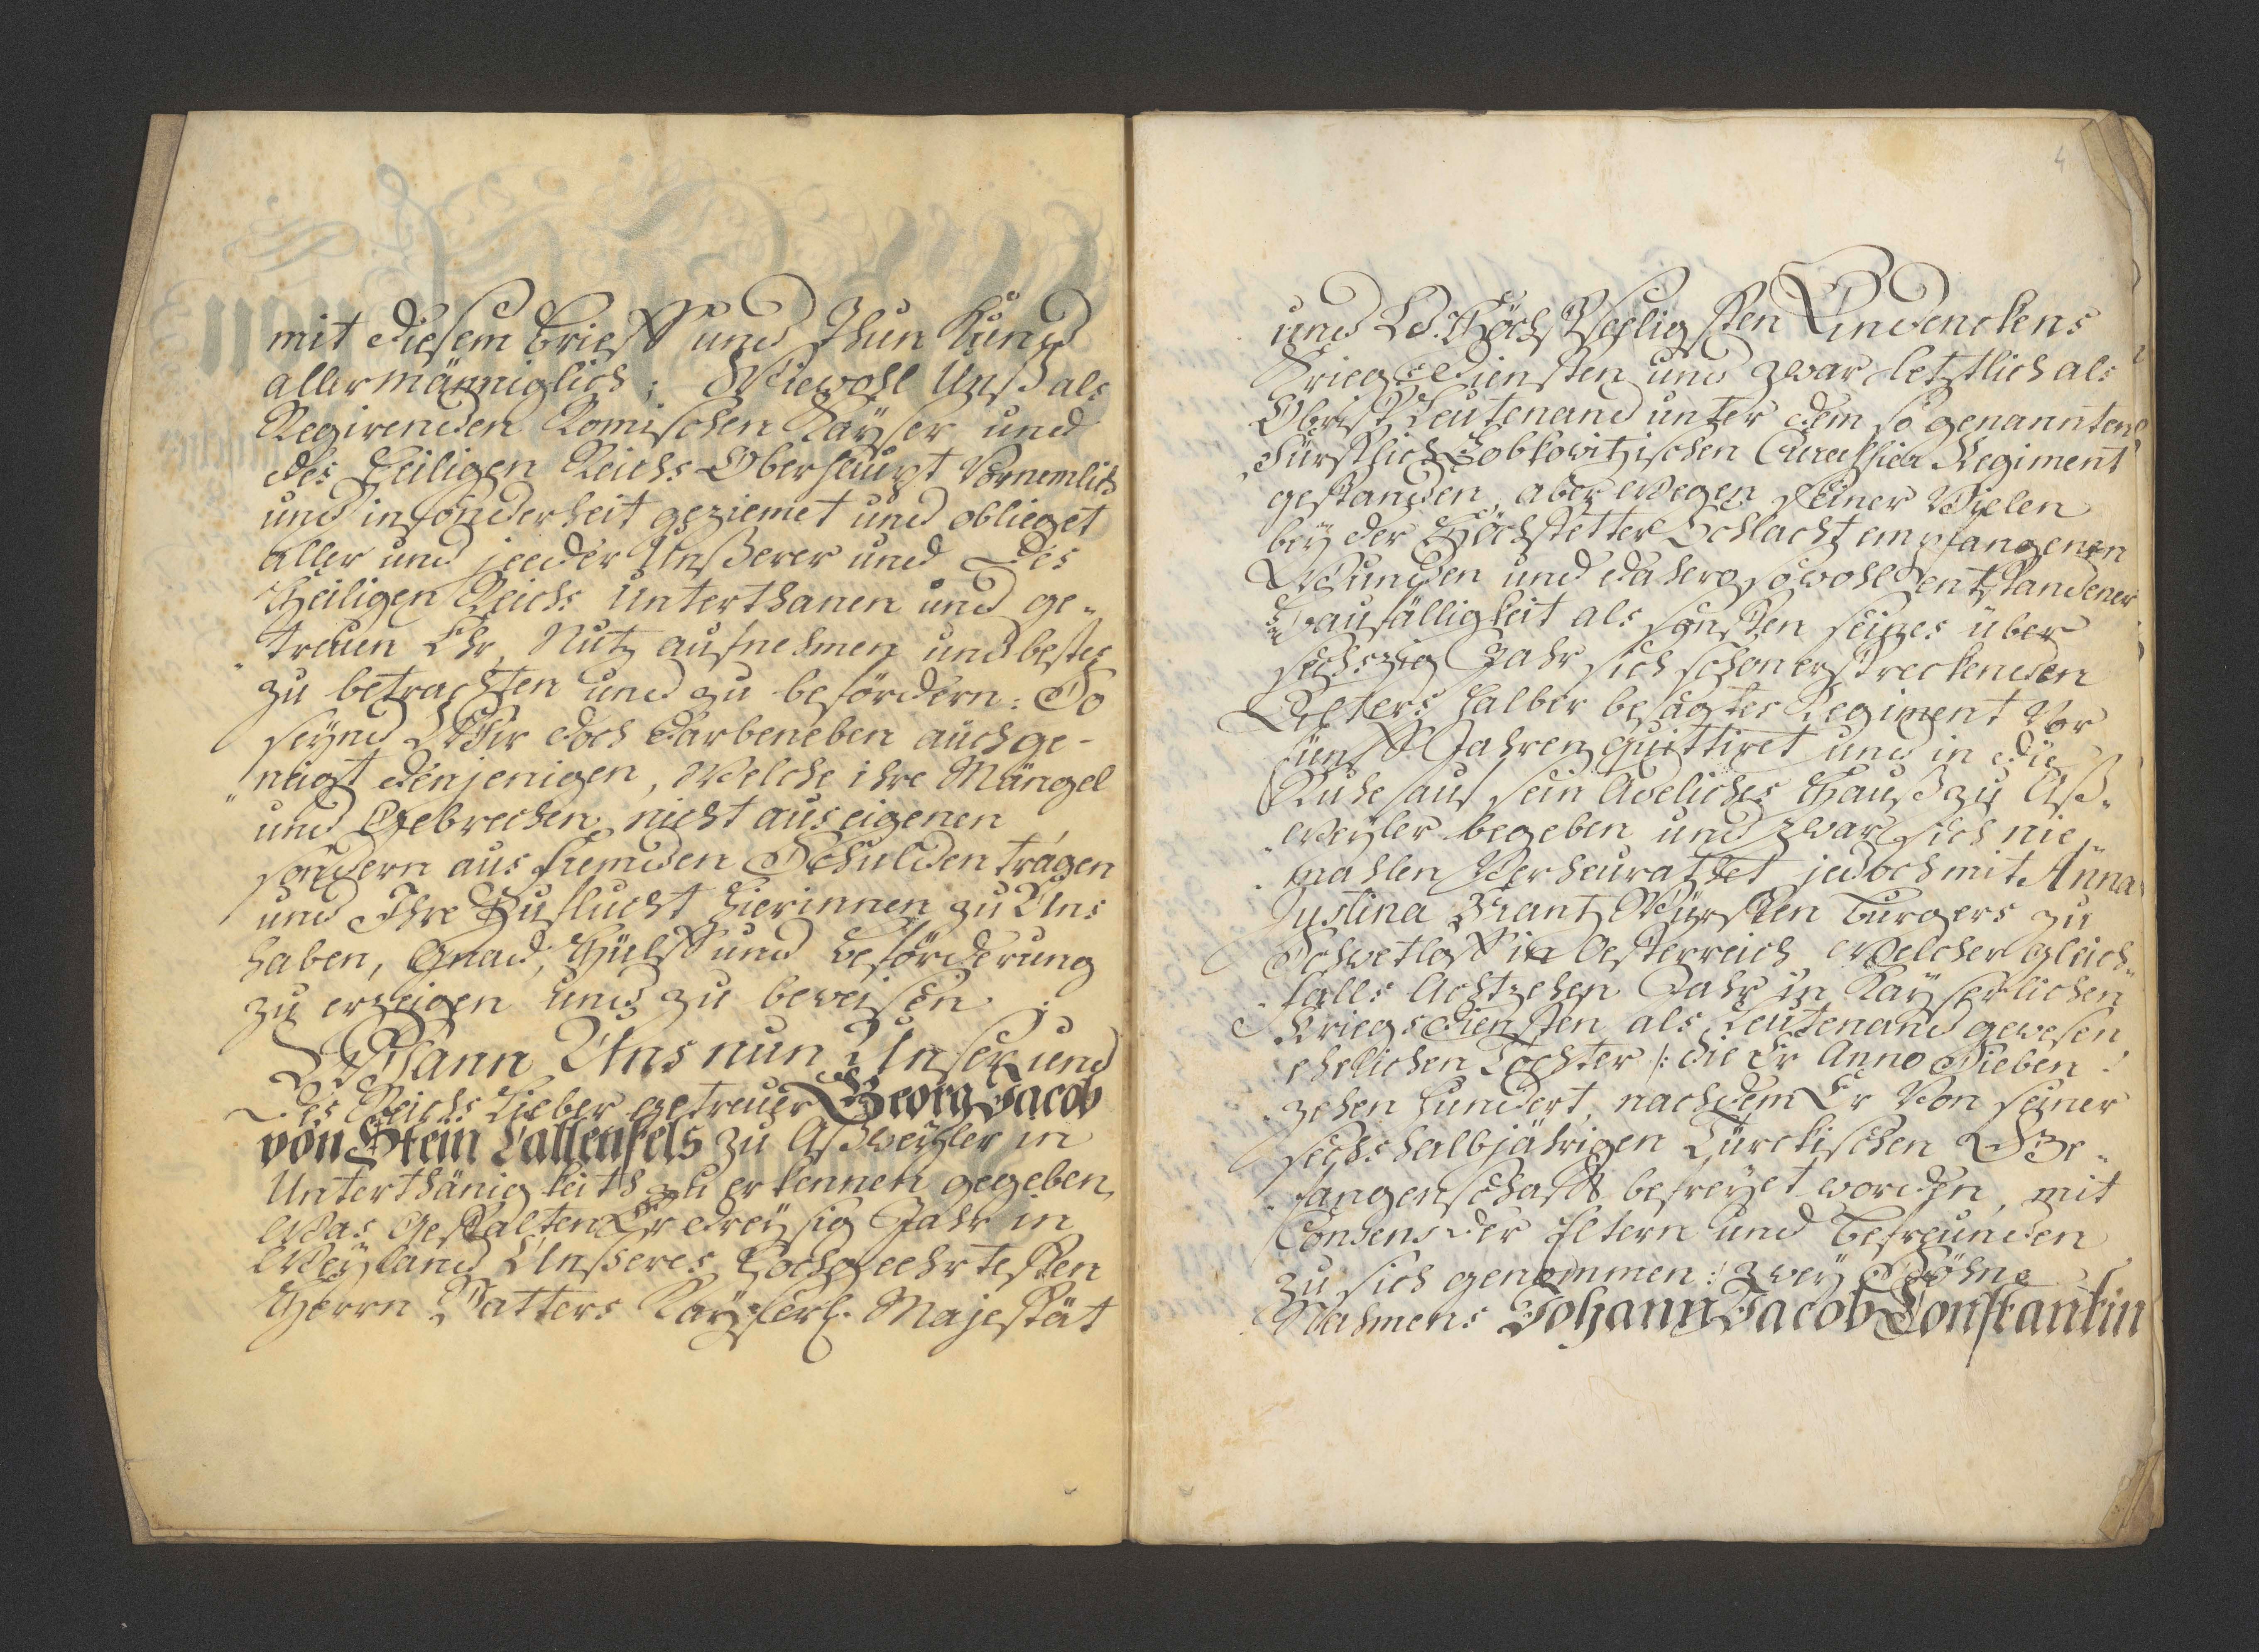 mit diesem brieff und Thun Kund
allermänniglich; Wiewohl Unß als
Regirenden Romischen Kayser und
des Heiligen Reichs Oberhaupt Vornemlich
und insonderheit geziemet und oblieget
aller und jeeder Unßerer und des
Heiligen Reichs Unterthanen und ge„
„treuen Ehr, Nutz aufnehmen und bestes
zu betrachten und zu befördern: So
seynd Wir doch darbeneben auch ge-
„neigt denjenigen, Welche ihre Mängel
und Gebrechen nicht aus eigenen
sondern aus fremden Schulden tragen
und Ihre Zuflucht hierinnen zu Uns
haben, Gnad, Hülff und beförderung
zu erzeigen und zu beweisen.
Wann Uns nun Unser und
des Reichs Lieber getreuer Georg Jacob
von Stein Callenfels zu Aßweyler in
Unterthänigkeith zu erkennen gegeben,
Was Gestalten Er dreysig Jahr in
Weyland Unßeres Hochgeehrtesten
Herrn Vatters Kayserl. Majestät
4
und Ld. Höchstseeligsten Andenckens
Kriegsdiensten und zwar letztlich als
Obrist Leutenand unter dem so genannten
Fürstlich Lobkowitzischen Curassier Regiment
gestanden, aber wegen seiner Vielen
bey der Höchstetter Schlacht empfangenen
Wunden und dahero sowohl entstandener
Baufälligkeit als sonsten seines über
sechszig Jahr sich schon erstreckenden
Alters halber besagtes Regiment Vor
fünff Jahren quittiret und in die
Ruhe auf sein Adeliches Hauß zu Aß„
„weyler begeben und zwar sich nie„
„mahlen Verheurathet jedoch mit Anna
Justina Frantz Würsten Burgers zu
Schwetlof in Oesterreich Welcher gleich„
„falls Achtzehen Jahr in Kayserlichen
Kriegsdiensten als Leutenand gewesen
ehelichen Tochter /: die Er Anno Sieben
„zehen hundert, nachdem Er Von seiner
sechshalbjährigen Türckischen Ge„
„fangenschafft befreyet worden, mit
Consens der Eltern und Befreunden
zu sich genommen :/ zwey Söhne
Nahmens Johann Jacob Constantin